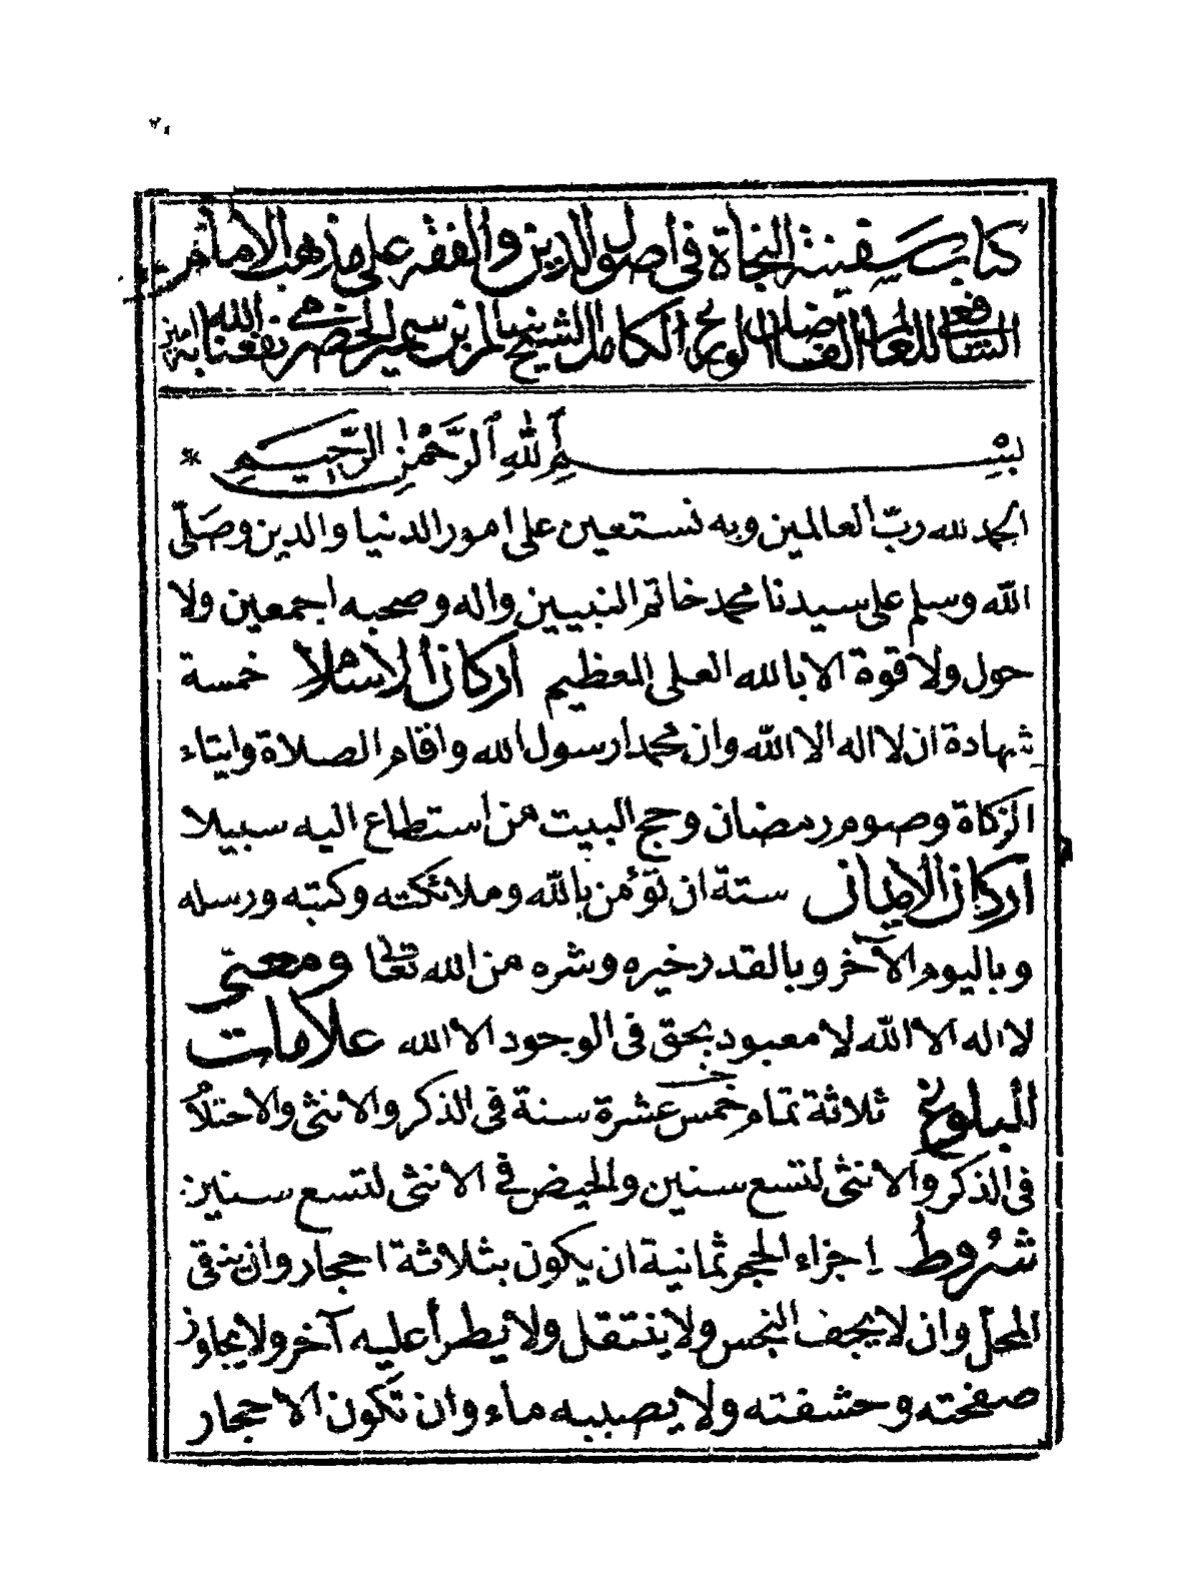 كتاب سفينة النجاة فى اصول الدين والفقه على مذهب الامام
الشافعى للعالم الفاضل الورع الكامل الشيخ سالم بن سمير الحضرمى نفعنا به الله امين
بِسْمِ اللهِ الرَّحْمٰنِ الرَّحِيمِ *
الحمد لله ربّ العالمين وبه نستعين على امور الدنيا والدين وصَلّى
اللّه وسلم على سيدنا محمد خاتم النبيين واله وصحبه اجمعين ولا
حول ولا قوة الا بالله العلى العظيم اركان الاسلام خمسة
شهادة ان لا اله الا اللّه وان محمدا رسول الله واقام الصلاة وايتاء
الزكاة وصوم رمضان وحج البيت من استطاع اليه سبيلا
اركان الايمان ستة ان تؤمن باللّه وملائكته وكتبه ورسله
وباليوم الآخر وبالقدر خيره وشره من الله تعالى ومعنى
لا اله الا اللّه لا معبود بحق فى الوجود الا الله علامات
البلوغ ثلاثة تمام خمس عشرة سنة فى الذكر والانثى والاحتلام
فى الذكر والانثى لتسع سنين والحيض فى الانثى لتسع سنين
شروط إجزاء الحجر ثمانية ان يكون بثلاثة احجار وان ينقى
المحلّ وان لا يجف النجس ولا ينتقل ولا يطرأ عليه آخر ولا يجاوز
صفحته وحشفته ولا يصيبه ماء وان تكون الاحجار